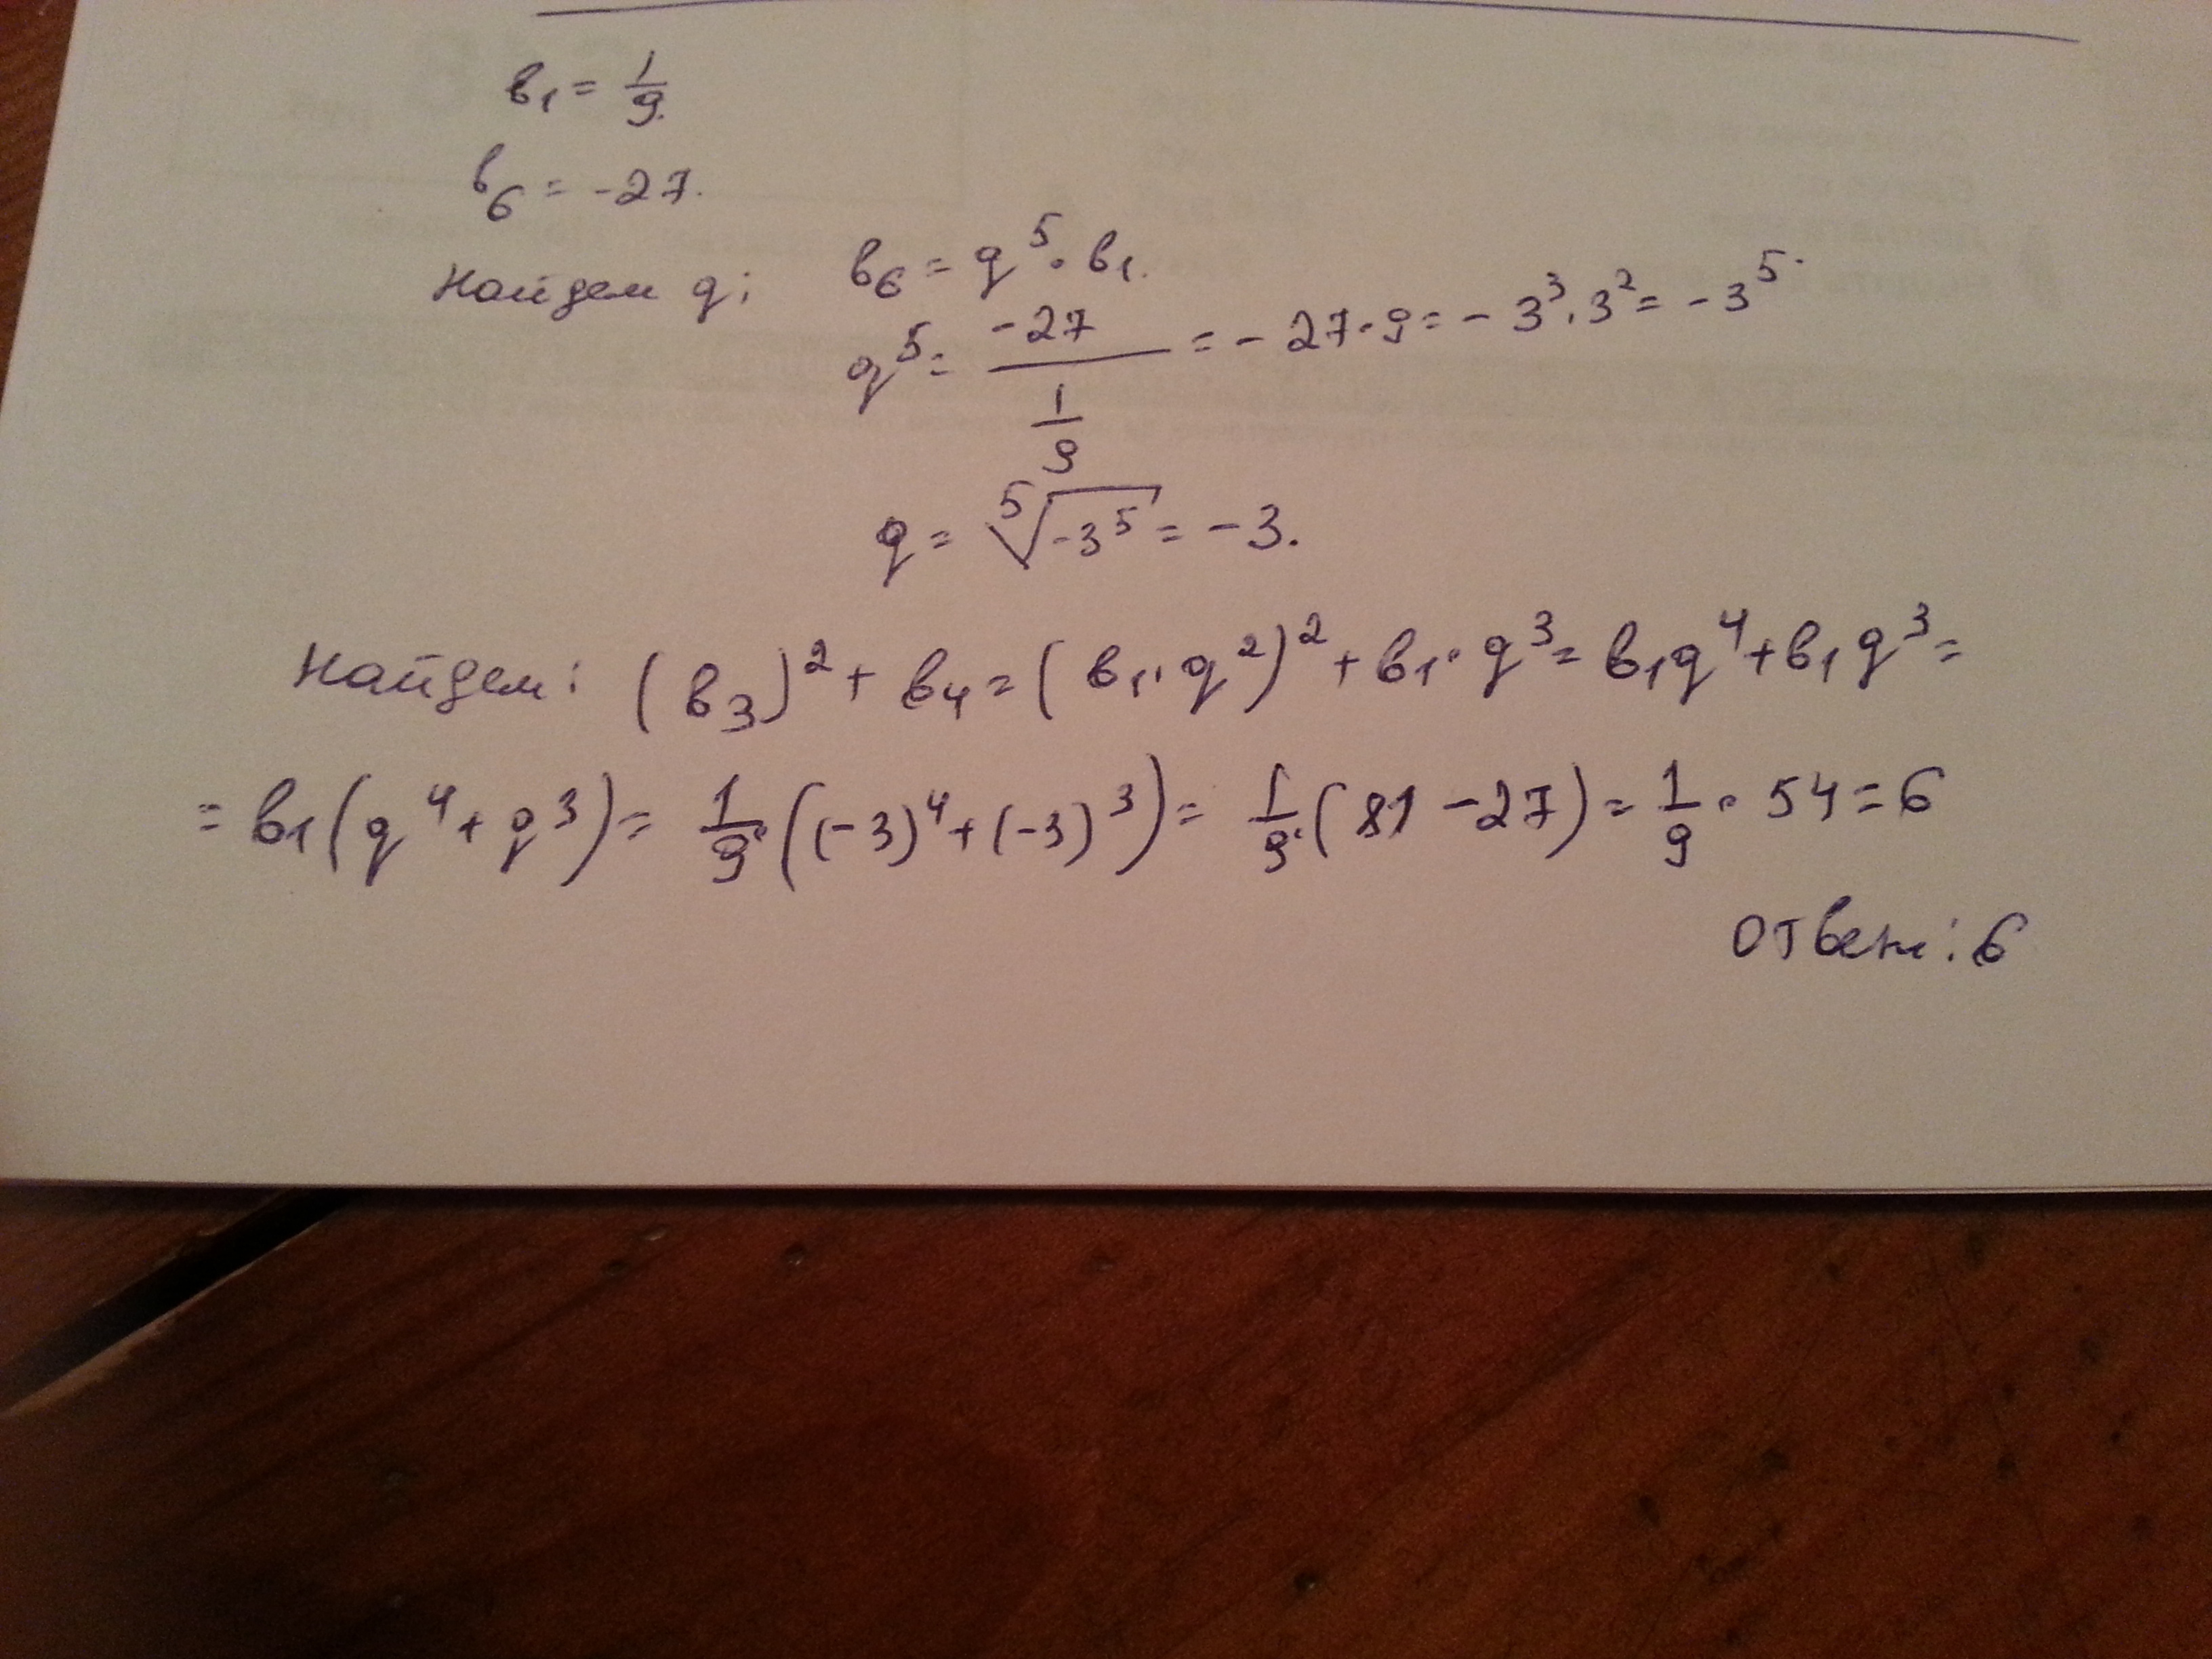 в₁ = 1/9.
в₆ = -27.
Найдем q: в₆ = q⁵ · в₁.
q⁵ = -27 / (1/9) = -27·9 = -3³·3² = -3⁵.
q = ⁵√(-3⁵) = -3.
Найдем: (в₃)² + в₄ = (в₁·q²)² + в₁·q³ = в₁q⁴ + в₁q³ =
= в₁(q⁴ + q³) = 1/9·((-3)⁴ + (-3)³) = 1/9·(81 - 27) = 1/9 · 54 = 6
Ответ: 6